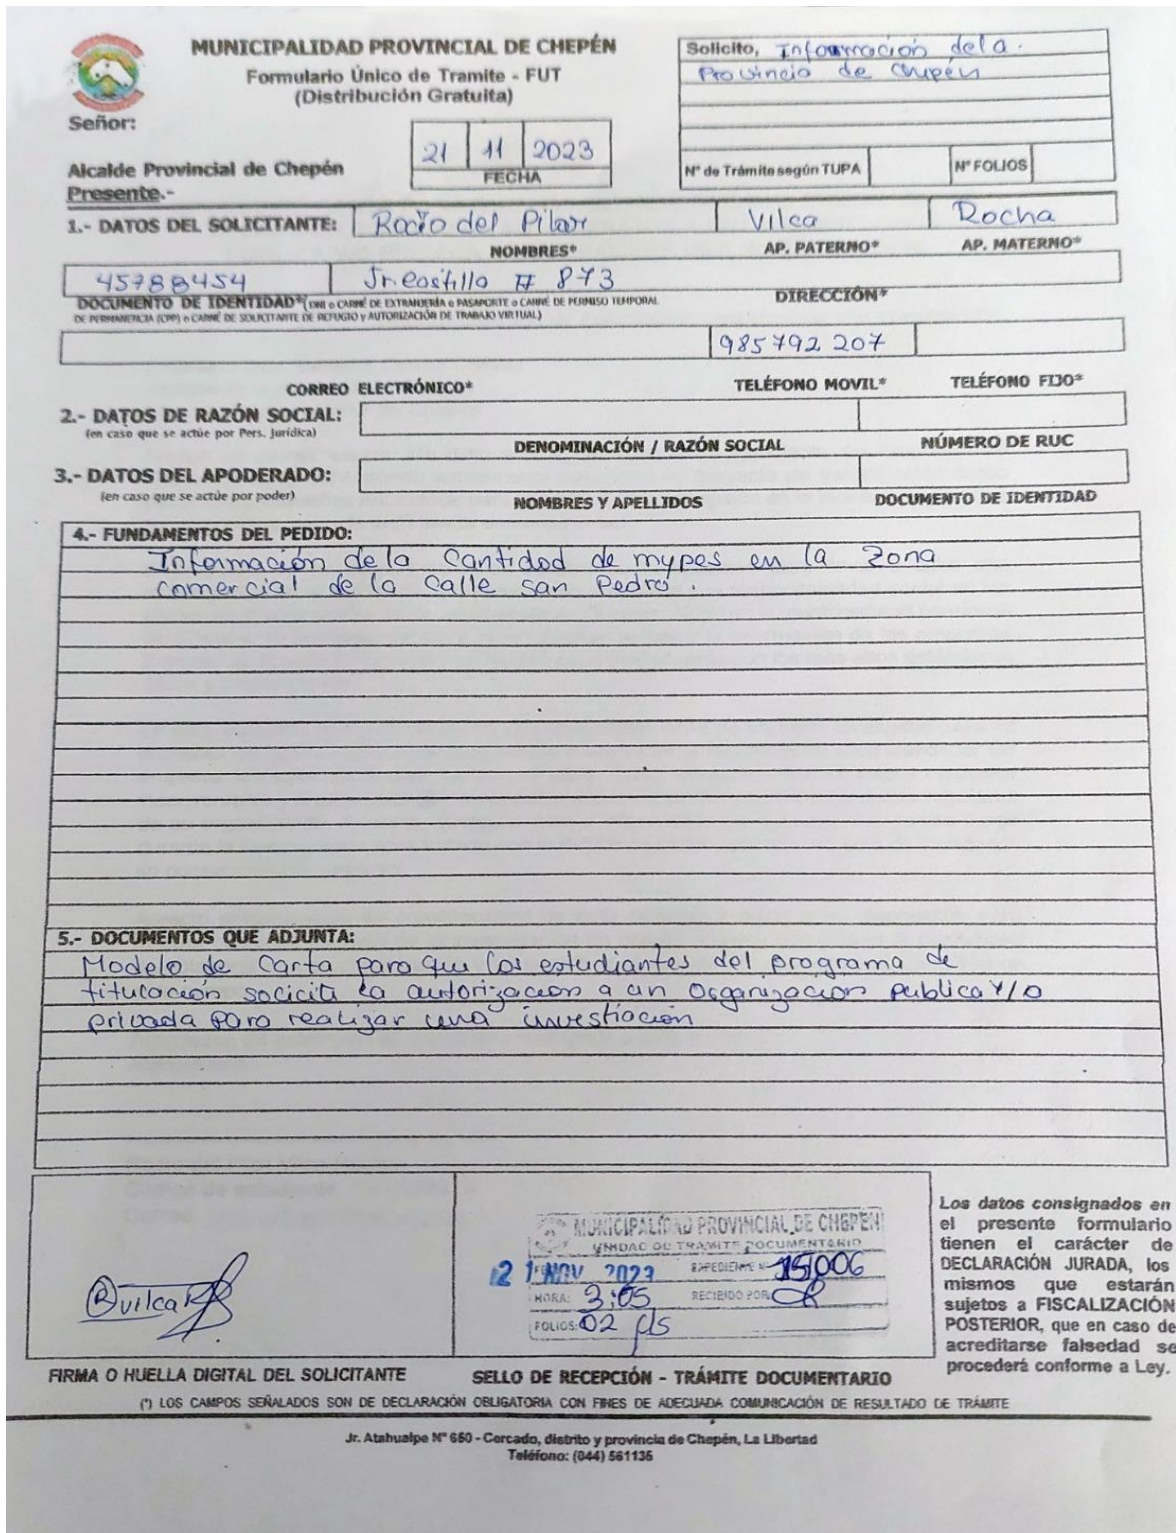 MUNICIPALIDAD PROVINCIAL DE CHEPÉN
Formulario Único de Tramite - FUT
(Distribución Gratuita)
Señor:
Alcalde Provincial de Chepén
Presente.-
21 11 2023
FECHA
Solicito, Información de la
Provincia de Chepén
N° de Trámite según TUPA
N° FOLIOS
1.- DATOS DEL SOLICITANTE: Rocío del Pilar Vilca Rocha
NOMBRES* AP. PATERNO* AP. MATERNO*
45788454 Jr. Castillo # 873
DOCUMENTO DE IDENTIDAD* (DNI o CARNÉ DE EXTRANJERÍA o PASAPORTE o CARNÉ DE PERMISO TEMPORAL
DE PERMANENCIA (CPP) o CARNÉ DE SOLICITANTE DE REFUGIO y AUTORIZACIÓN DE TRABAJO VIRTUAL)
DIRECCIÓN*
985792207
CORREO ELECTRÓNICO* TELÉFONO MOVIL* TELÉFONO FIJO*
2.- DATOS DE RAZÓN SOCIAL:
(en caso que se actúe por Pers. Jurídica)
DENOMINACIÓN / RAZÓN SOCIAL NÚMERO DE RUC
3.- DATOS DEL APODERADO:
(en caso que se actúe por poder)
NOMBRES Y APELLIDOS DOCUMENTO DE IDENTIDAD
4.- FUNDAMENTOS DEL PEDIDO:
Información de la Cantidad de mypes en la Zona
comercial de la Calle San Pedro.
5.- DOCUMENTOS QUE ADJUNTA:
Modelo de Carta para que los estudiantes del programa de
titulación socicita la autorización a un Organización publica Y/O
privada para realizar una investiación
RVilcaR
MUNICIPALIDAD PROVINCIAL DE CHEPEN
UNIDAD DE TRAMITE DOCUMENTARIO
21 NOV 2023 EXPEDIENTE N° 151006
HORA: 3:05 RECIBIDO POR:
FOLIOS: 02 fls
Los datos consignados en
el presente formulario
tienen el carácter de
DECLARACIÓN JURADA, los
mismos que estarán
sujetos a FISCALIZACIÓN
POSTERIOR, que en caso de
acreditarse falsedad se
procederá conforme a Ley.
FIRMA O HUELLA DIGITAL DEL SOLICITANTE
SELLO DE RECEPCIÓN - TRÁMITE DOCUMENTARIO
(*) LOS CAMPOS SEÑALADOS SON DE DECLARACIÓN OBLIGATORIA CON FINES DE ADECUADA COMUNICACIÓN DE RESULTADO DE TRÁMITE
Jr. Atahualpa N° 650 - Cercado, distrito y provincia de Chepén, La Libertad
Teléfono: (044) 561135